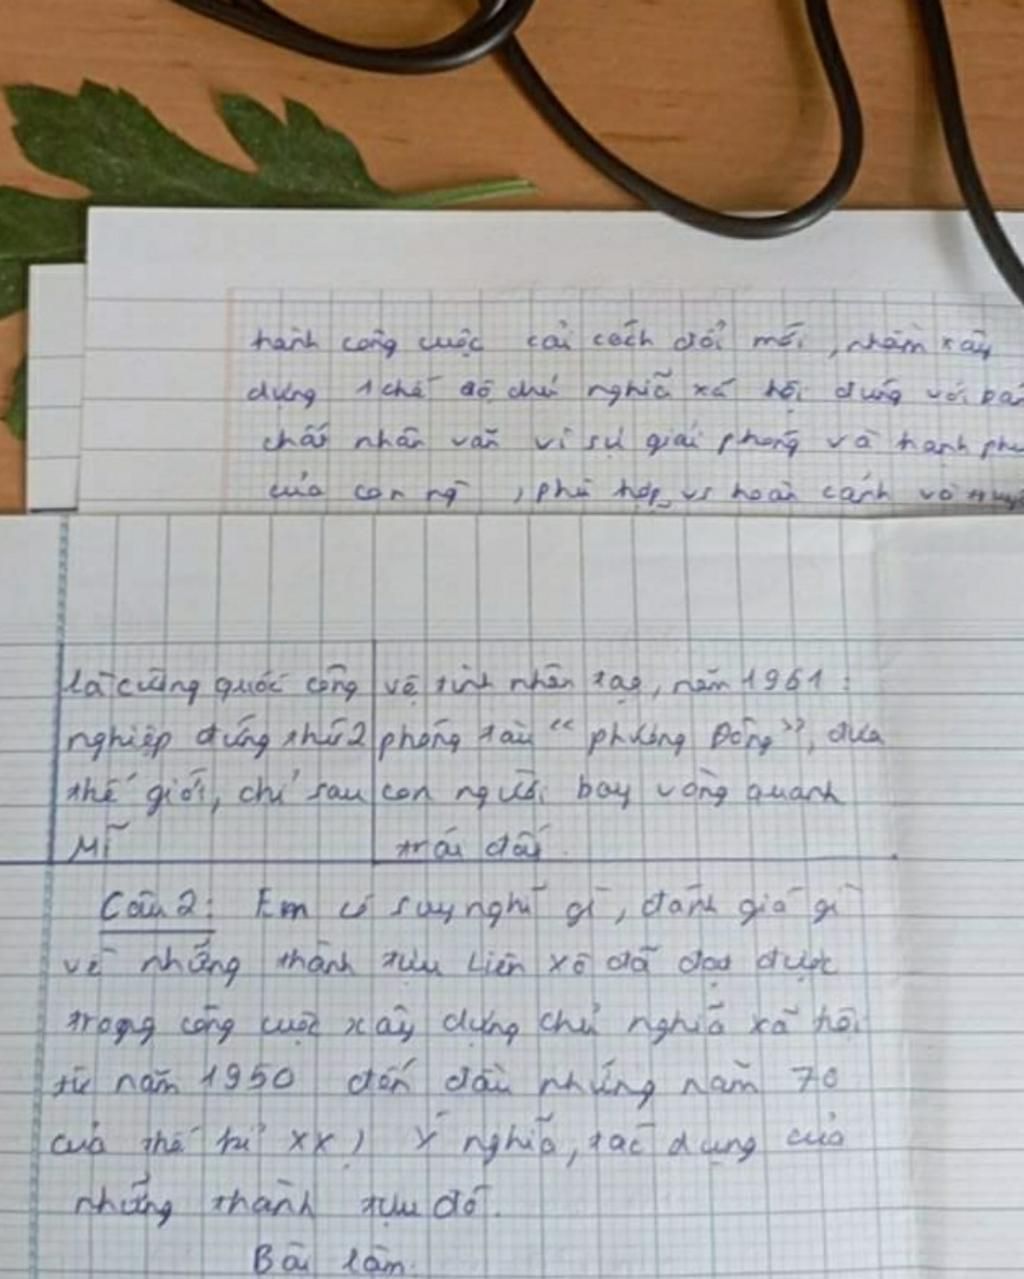 hành công cuộc cải cách đổi mới, nhằm xây
dựng 1 chế độ chủ nghĩa xã hội đúng với bản
chất nhân văn vì sự giải phóng và hạnh phú
của con ng, phù hợp vs hoàn cảnh và
là cường quốc công
nghiệp đứng thứ 2
thế giới, chỉ sau
Mĩ
vệ tinh nhân tạo, năm 1961:
phóng tàu "phương Đông", đưa
con người bay vòng quanh
trái đất.
Câu 2: Em có suy nghĩ gì, đánh giá gì
về những thành tựu Liên Xô đã đạt được
trong công cuộc xây dựng chủ nghĩa xã hội
từ năm 1950 đến đầu những năm 70
của thế kỉ XX) Ý nghĩa, tác dụng của
những thành tựu đó.
Bài làm.